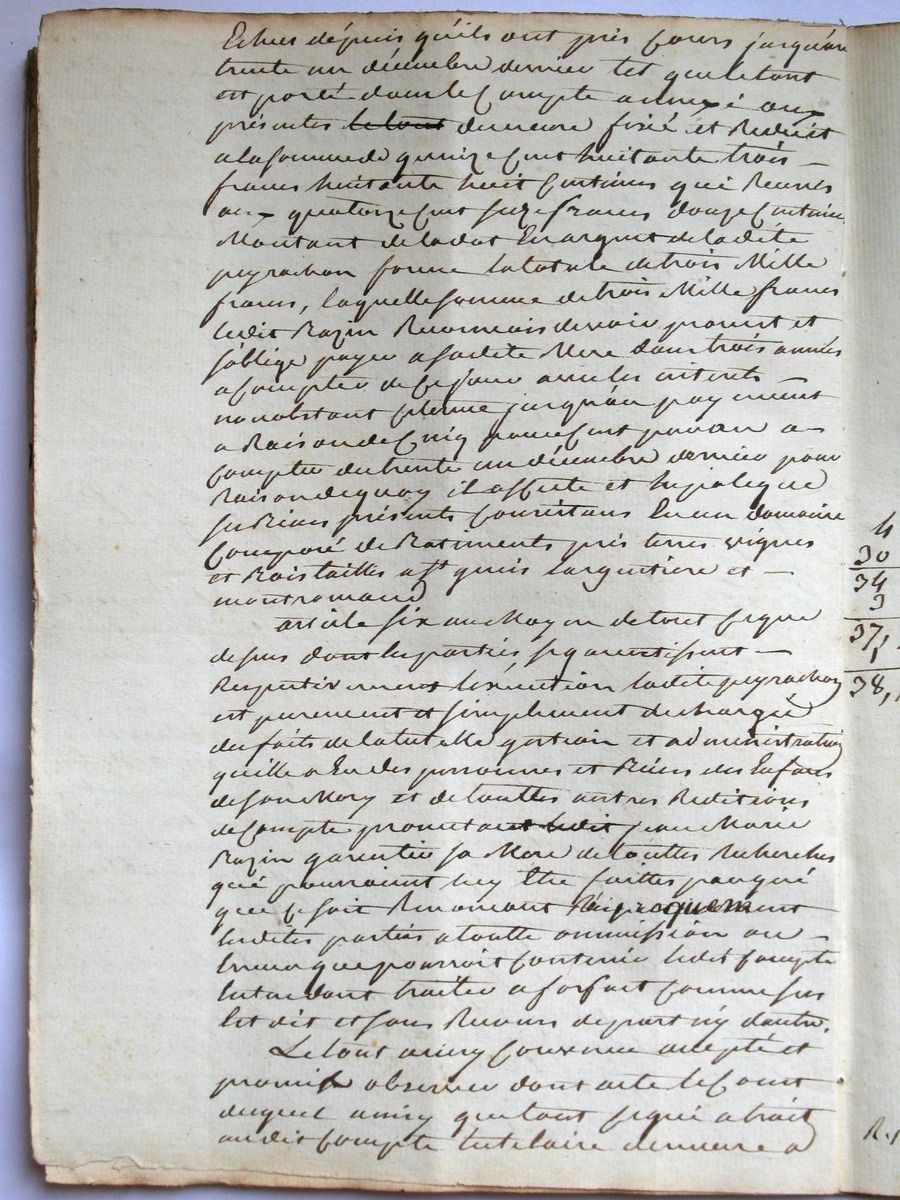 Echus dépuis quils ont pris Cours jusquau
trente un décembre dernier tel que le tout
est porté dans le Compte annexé aux
présentes le tout demeure fixé et Reduit
a la somme de quinze Cent huitante trois
francs huitante huit Centimes qui Reunis
aux quatorze Cent seize francs douze Centimes
Montant de la dot En argent de la dite
peyrachon forme la totale de trois Mille
francs, laquelle somme de trois Mille francs
ledit Razin Reconnais devoir promet et
s'oblige payer a sa dite Mere dans trois années
a Compter de Ce jour avec les interets
nonobstant terme jusquau payement
a Raison de Cinq pour Cent par an a
Compter du trente un décembre dernier pour
Raison de quoy il affecte et hipoteque
ses Biens présents Consistans En un domaine
Composé de Batiments prés terres vignes
et Bois tailles largentiere et
montromand
article six au Moyen de tout Ceque
desus dont les parties se garentissent
Respectivement l'éxécution ladite peyrachon
est purement et simplement dechargée
des faits de la tutelle gestion et administration
quelle a Eu des personnes et Biens des Enfans
de son Mary et de touttes autres Reditions
de Compte promettant ledit jean Marie
Razin garentir sa Mere de touttes Recherches
qui pourraient luy Etre faittes par qui
que Ce soit Renonçant Réciproquement
lesdites parties a toutte ommission ou
Erreur que pourroit Contenir ledit Compte
Entendant traiter a forfait Comme sus
Est dit et sans Recours de part ny dautre.
Le tout ainsy Convenu accepté et
promis observer dont acte le Cout
duquel ainsy que tout Cequi a trait
audit Compte tutelaire demeure a
4
30
34
3
37,
1
38,
R.